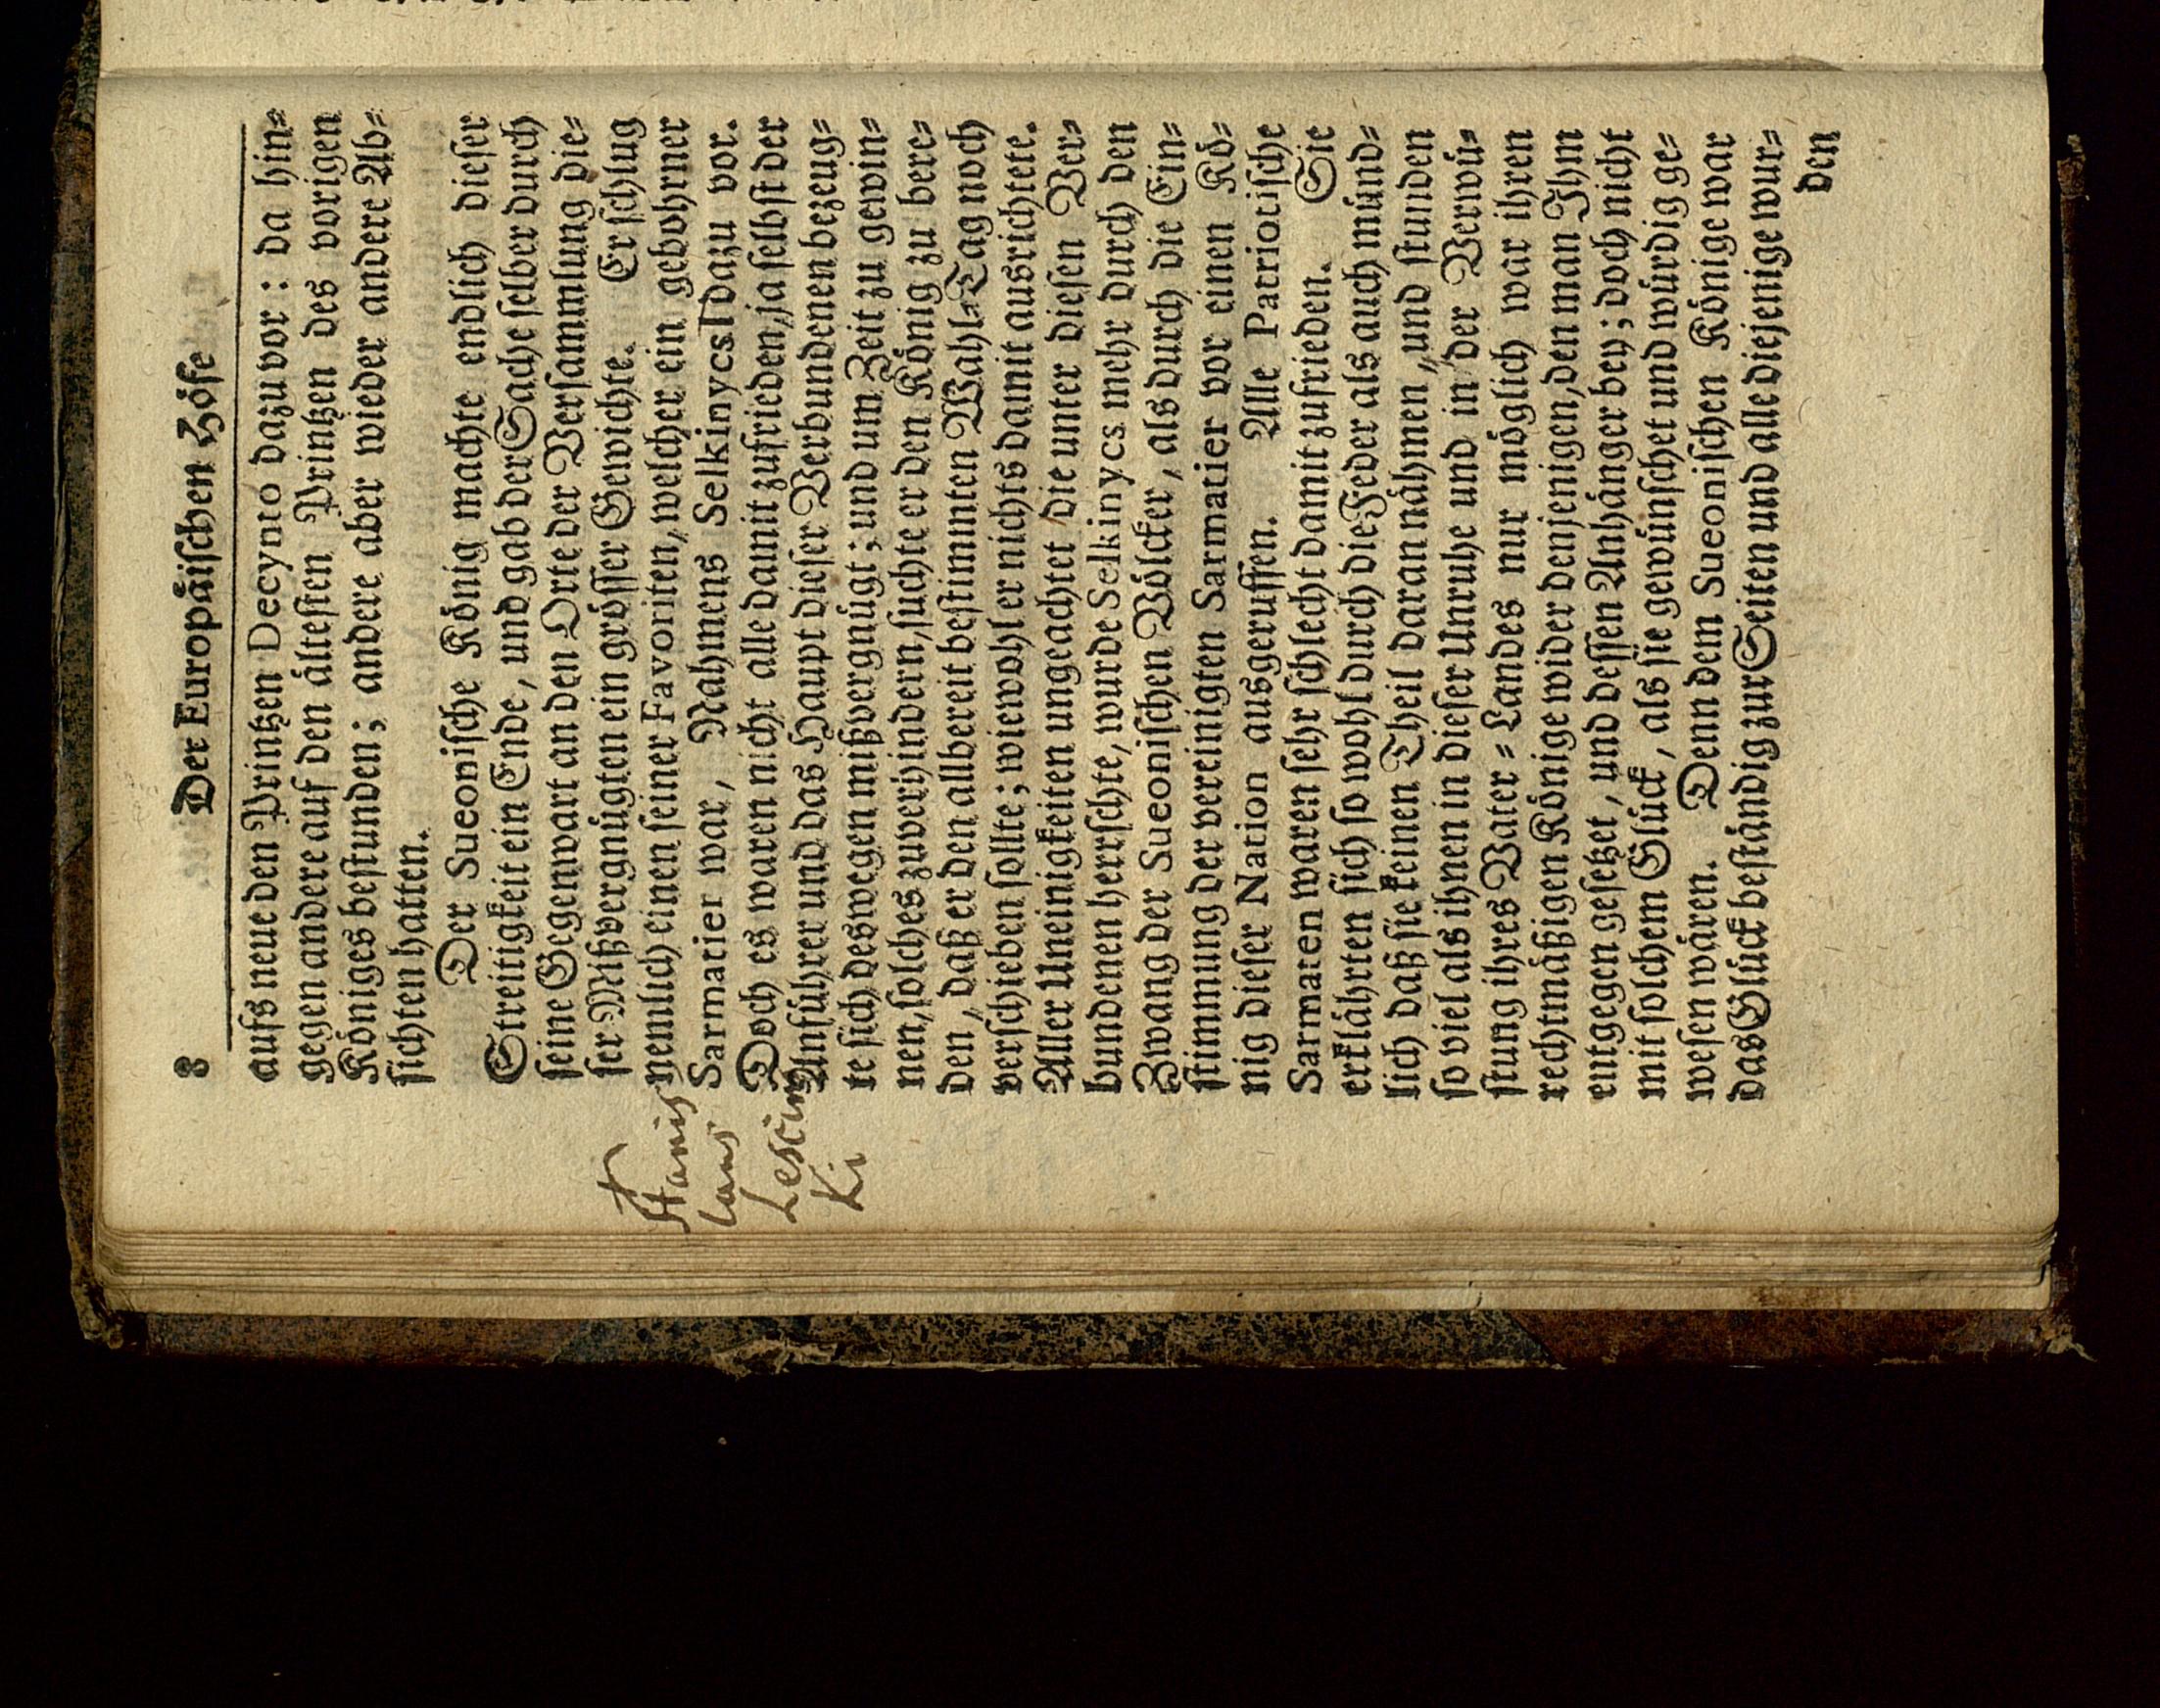 8 Der Europäischen Höfe
aufs neue den Printzen Decynto dazu vor: da hin=
gegen andere auf den ältesten Printzen des vorigen
Königes bestunden; andere aber wieder andere Ab=
sichten hatten.
Der Sueonische König machte endlich dieser
Streitigkeit ein Ende, und gab der Sache selber durch
seine Gegenwart an den Orte der Versammlung die=
ser Mißvergnügten ein grösser Gewichte. Er schlug
nemlich einen seiner Favoriten, welcher ein gebohrner
Sarmatier war, Nahmens Selkinycs I dazu vor.
Doch es waren nicht alle damit zufrieden, ja selbst der
Anführer und das Haupt dieser Verbundenen bezeug=
te sich deswegen mißvergnügt; und um Zeit zu gewin=
nen, solches zuverhindern, suchte er den König zu bere=
den, daß er den allbereit bestimmten Wahl=Tag noch
verschieben sollte; wiewohl er nichts damit ausrichtete.
Aller Uneinigkeiten ungeachtet die unter diesen Ver=
bundenen herrschte, wurde Selkinycs mehr durch den
Zwang der Sueonischen Völcker, als durch die Ein=
stimmung der vereinigten Sarmatier vor einen Kö=
nig dieser Nation ausgeruffen. Alle Patriotische
Sarmaten waren sehr schlecht damit zufrieden. Sie
erklährten sich so wohl durch die Feder als auch münd=
lich daß sie keinen Theil daran nähmen, und stunden
so viel als ihnen in dieser Unruhe und in der Verwü=
stung ihres Vater=Landes nur möglich war ihren
rechtmäßigen Könige wider denjenigen, den man Ihm
entgegen gesetzet, und dessen Anhänger bey; doch nicht
mit solchem Glück, als sie gewünschet und würdig ge=
wesen wären. Denn dem Sueonischen Könige war
das Glück beständig zur Seiten und alle diejenige wur=
den
Stanis
laus
Lescins
Ki